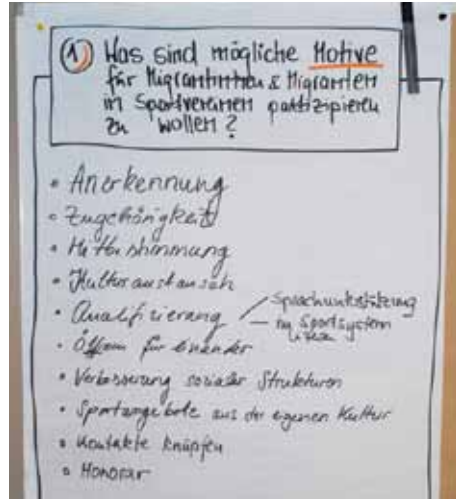 ① Was sind mögliche Motive
für Migrantinnen & Migranten
in Sportvereinen partizipieren
zu wollen?
• Anerkennung
• Zugehörigkeit
• Mitbestimmung
• Kulturaustausch
• Qualifizierung
Sprachunterstützung
im Sportsystem
• Öffnen für einander
• Verbesserung sozialer Strukturen
• Sportangebote aus der eigenen Kultur
• Kontakte knüpfen
• Honorar